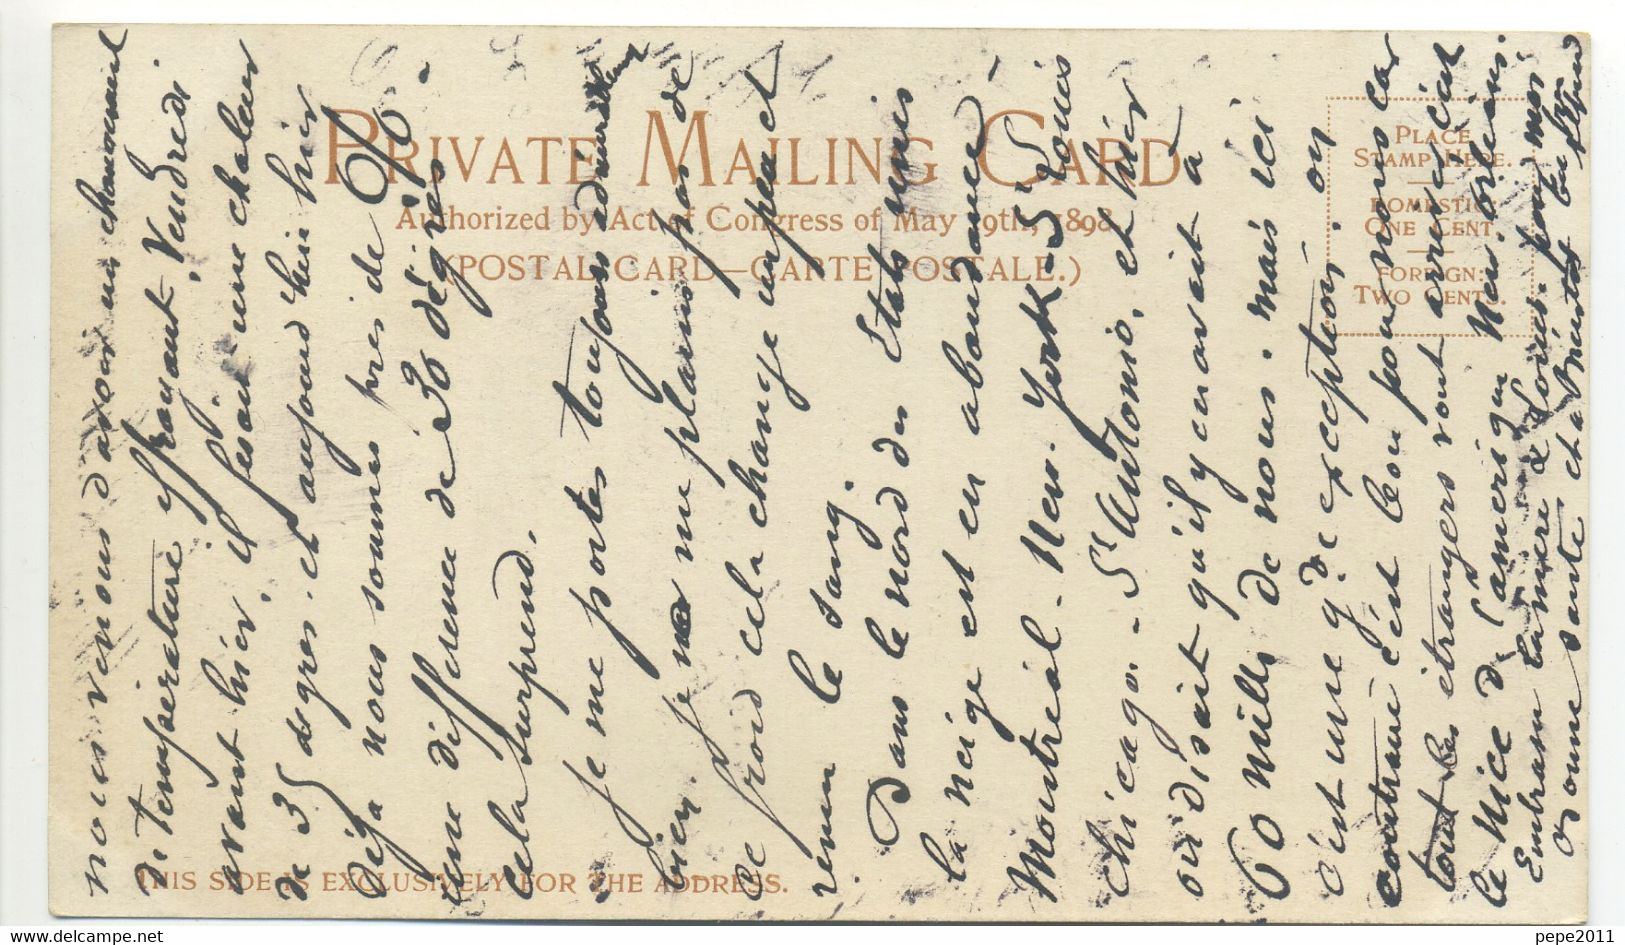 PRIVATE MAILING CARD
Authorized by Act of Congress of May 19th, 1898.
(POSTAL CARD—CARTE POSTALE.)
PLACE
STAMP HERE.
DOMESTIC:
ONE CENT
FOREIGN:
TWO CENTS.
THIS SIDE IS EXCLUSIVELY FOR THE ADDRESS.
nous venons d'avoir un changement
de température effrayant, Vendredi
avant hier, il fesait une chaleur
de 35 degres. et aujourd'hui hier
déja nous sommes près de 6/0.
une différence de 30 dégrés
cela surprend.
je me portes toujours
bien. Je me plains pas de
ce froid cela change un peu et
remue le sang.
Dans le nord des Etats unis
la neige est en abondance
Montréal - New. York - St Louis
Chicago. - St Antonio, et hier
on disait qu'il y en avait à
60 mills de nous. mais ici
c'est une gde exception. au
contraire c'est bou pour nous car
tout les étrangers vont
le Nice de l'amérique New. Orléans.
Embrasse ta mère & Louise. pour moi
donne santé et a Bientôt
delcampe.net
pepe2011